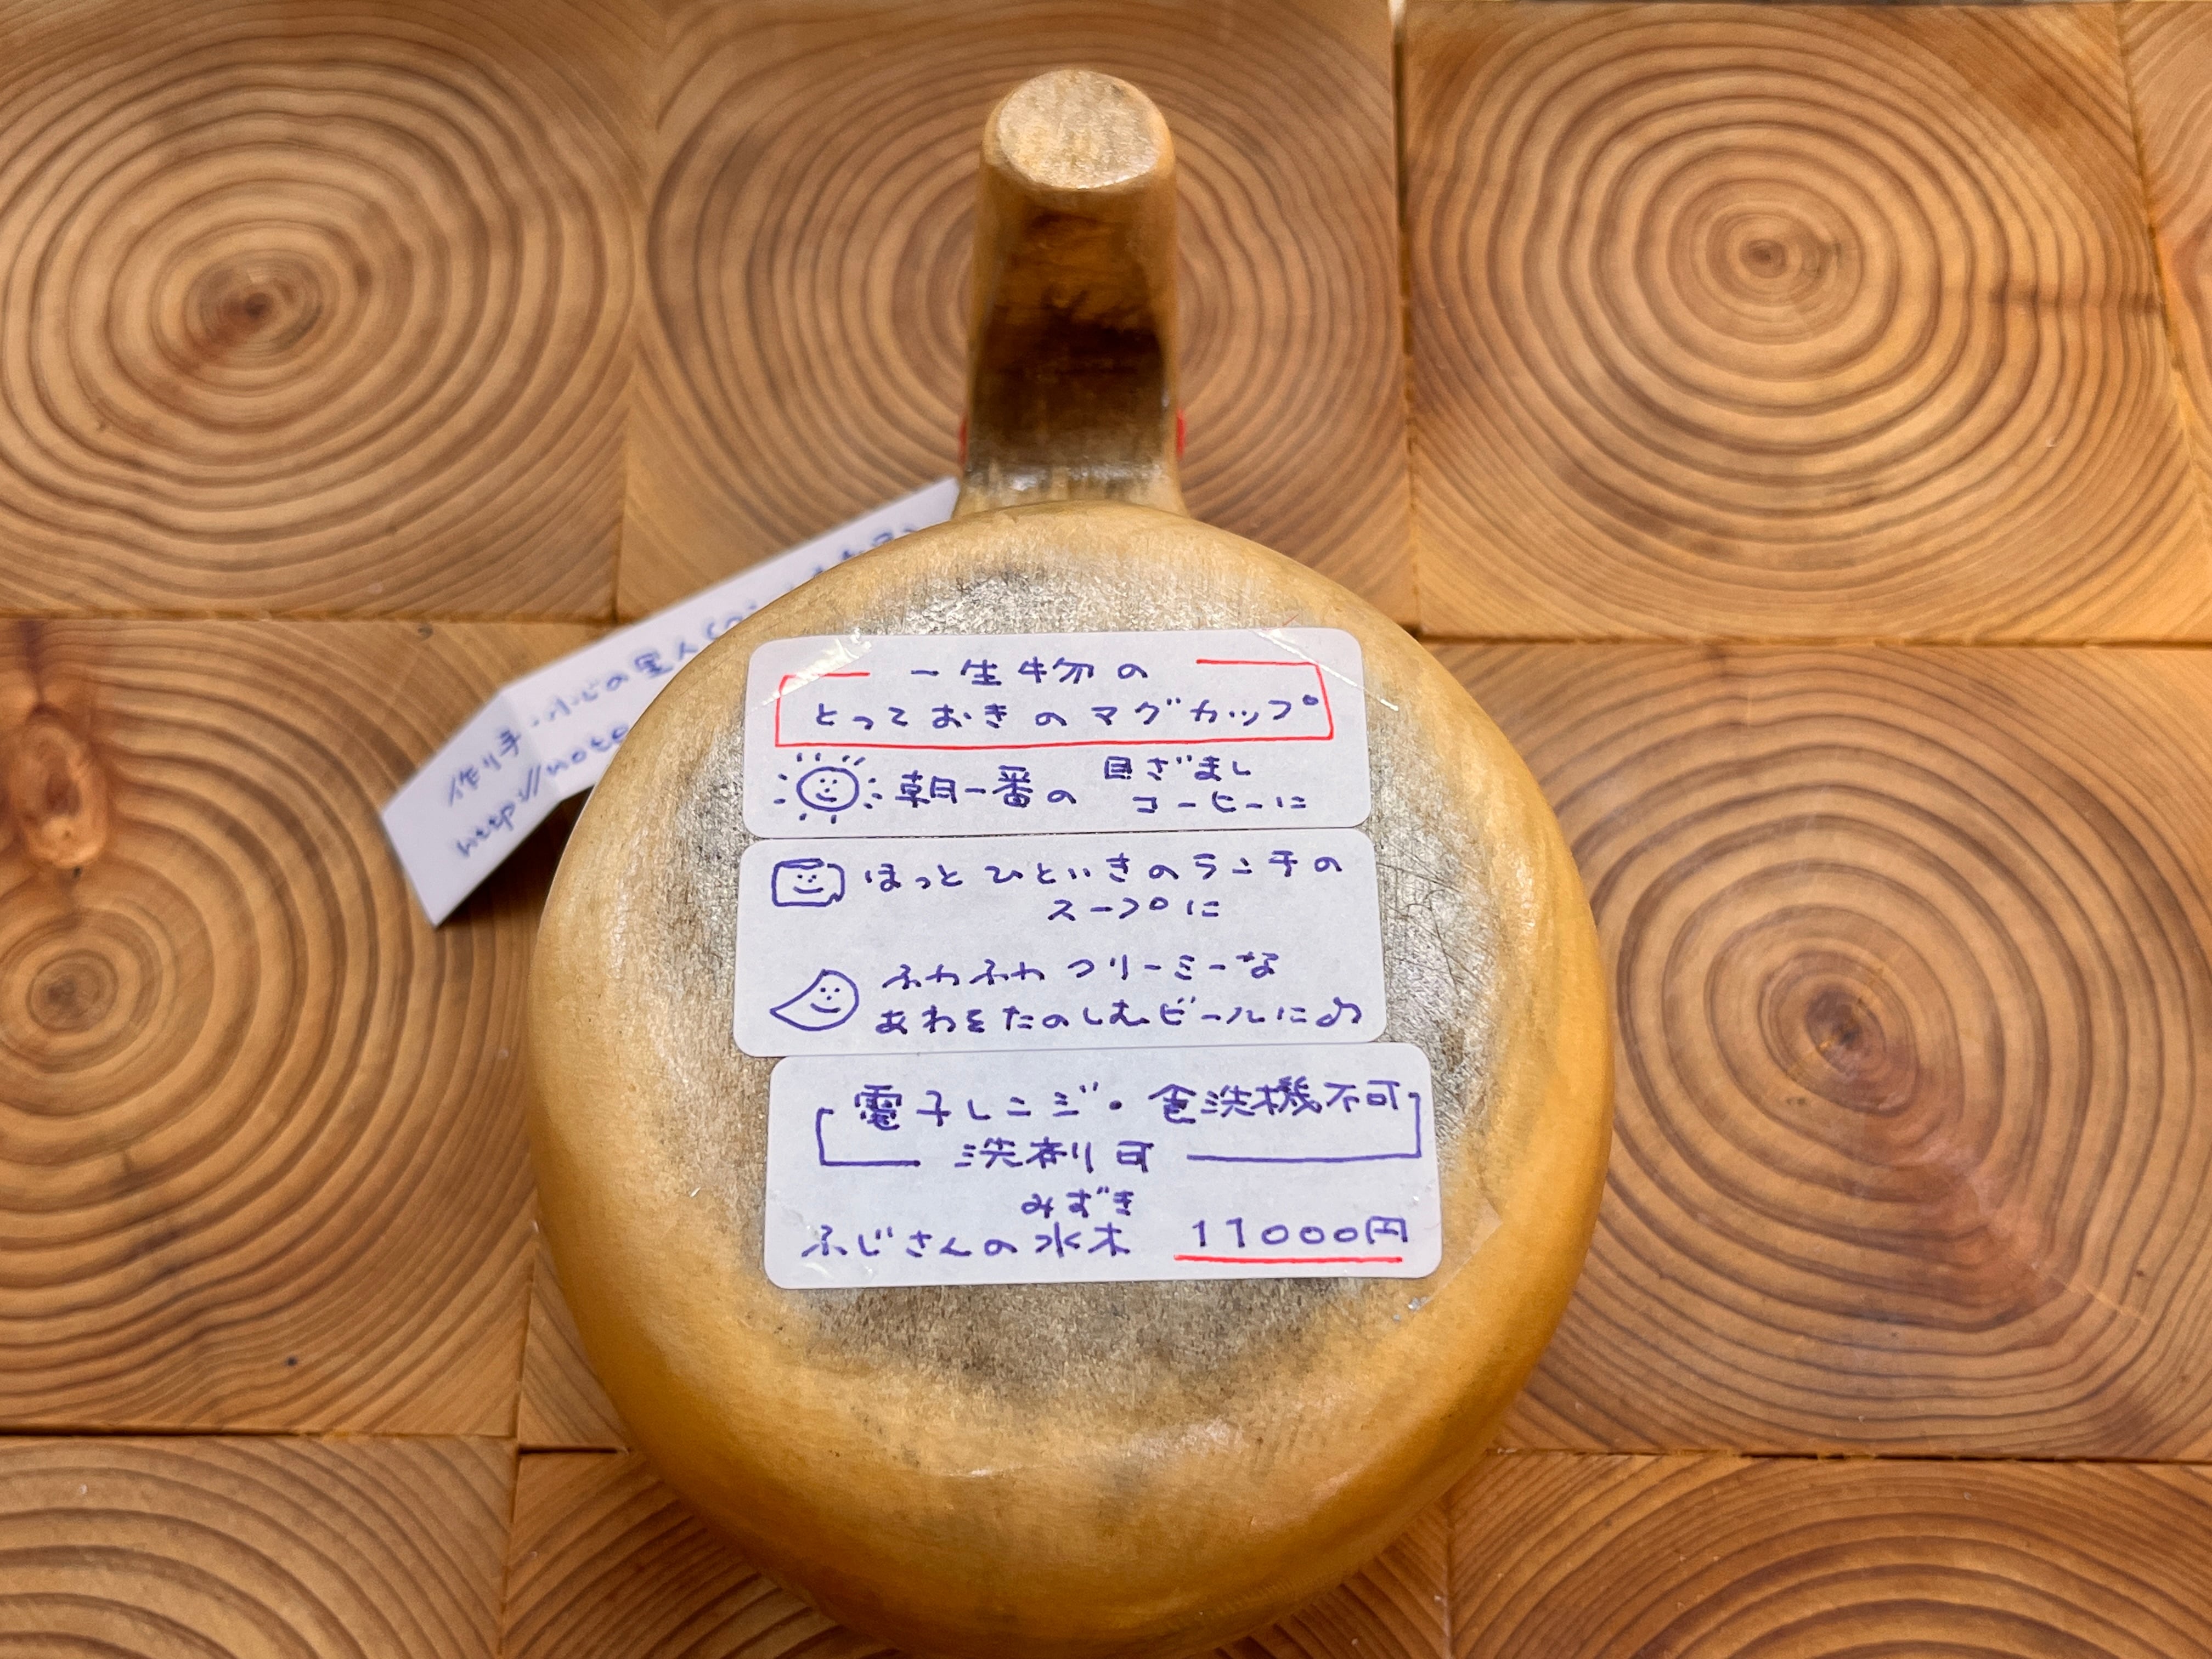 一生物の
とっておきのマグカップ
朝一番の 目ざまし
コーヒーに
ほっとひといきのランチの
スープに
ふわふわクリーミーな
あわをたのしむビールに♪
電子レンジ・食洗機不可
洗剤可
みずき
ふじさんの水木 11000円
作り手・ふじの里人
http://note